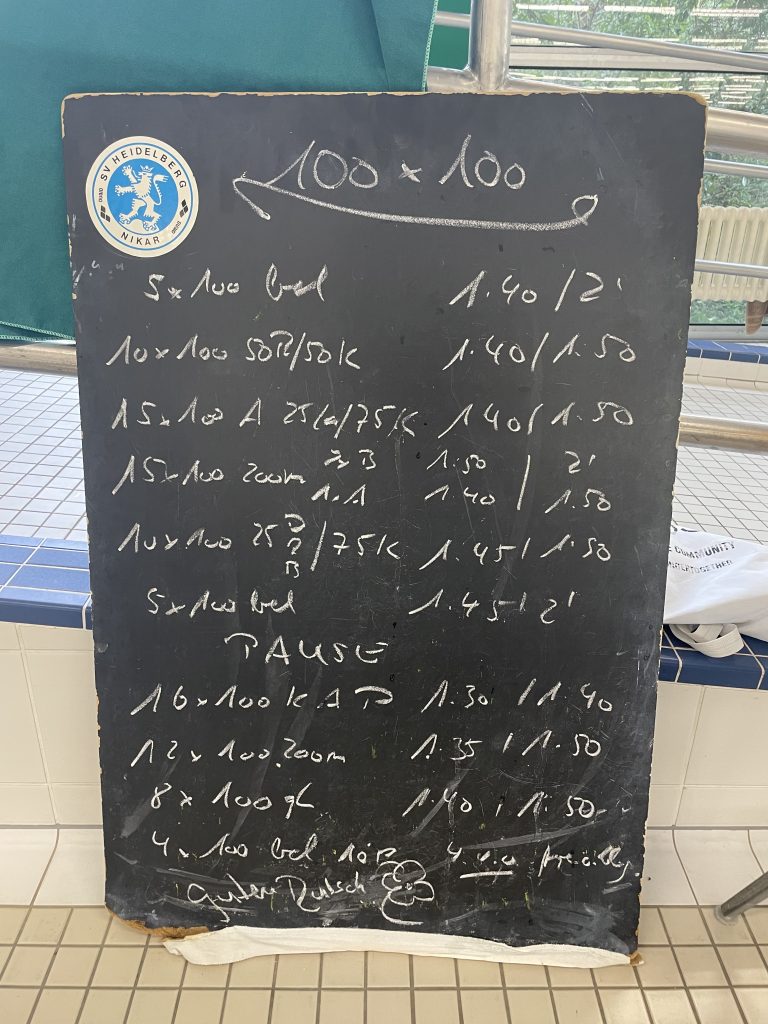 SV HEIDELBERG
NIKAR
100 x 100
5 x 100 bel 1.40 / 2'
10 x 100 50R/50K 1.40 / 1.50
15 x 100 A 25 /75K 1.40 / 1.50
15 x 100 200m 1.50 / 2'
1.A 1.40 1.50
10 x 100 25 /75K 1.45 / 1.50
B
5 x 100 bel 1.45 / 2'
PAUSE
16 x 100 K A 1.30 / 1.40
12 x 100 200m 1.35 / 1.50
8 x 100 gL 1.40 / 1.50
4 x 100 bel 4
guten Rutsch
COMMUNITY